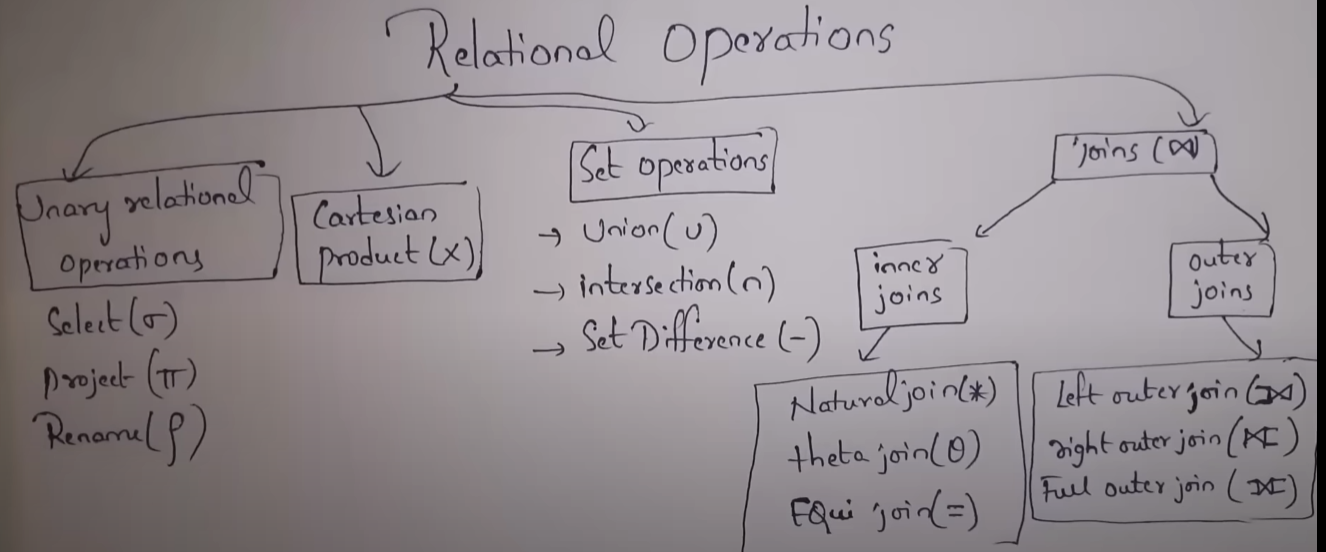 Relational Operations
Unary relational
operations
Select (σ)
project (π)
Rename (ρ)
Cartesian
product (×)
Set operations
→ Union (∪)
→ intersection (∩)
→ Set Difference (−)
joins (⋈)
inner
joins
Natural join (*)
theta join (θ)
EQui join (=)
outer
joins
Left outer join (⟕)
right outer join (⟖)
Full outer join (⟗)